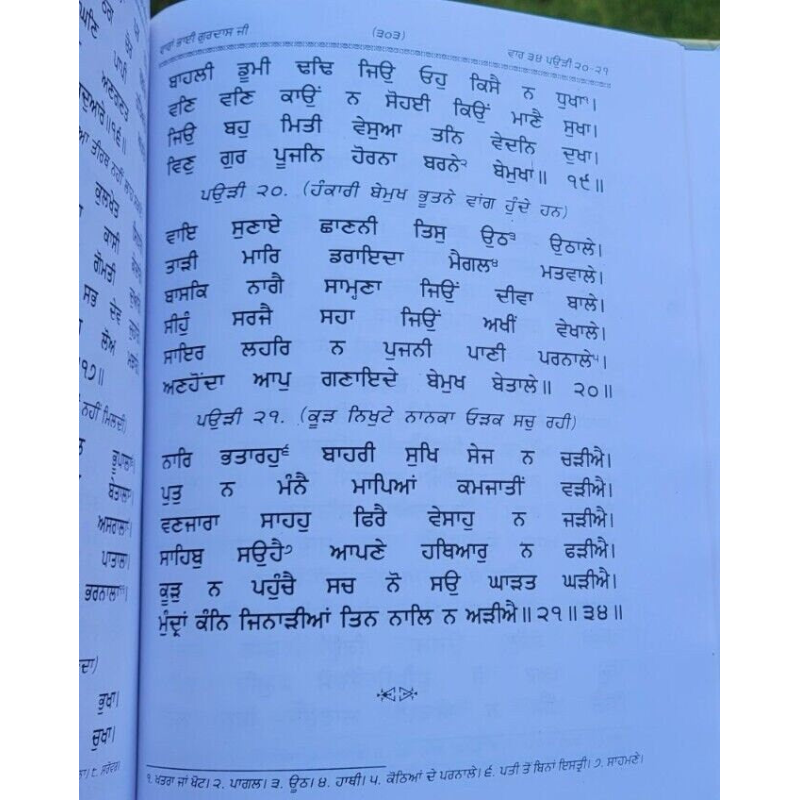 ਵਾਰਾਂ ਭਾਈ ਗੁਰਦਾਸ ਜੀ (੩੦੩) ਵਾਰ ੩੪ ਪਉੜੀ ੨੦-੨੧
ਬਾਹਲੀ ਡੂਮੀ ਢਢਿ ਜਿਉ ਓਹੁ ਕਿਸੈ ਨ ਧੁਖਾ੧।
ਵਣਿ ਵਣਿ ਕਾਉਂ ਨ ਸੋਹਈ ਕਿਉਂ ਮਾਣੈ ਸੁਖਾ।
ਜਿਉ ਬਹੁ ਮਿਤੀ ਵੇਸੁਆ ਤਨਿ ਵੇਦਨਿ ਦੁਖਾ।
ਵਿਣੁ ਗੁਰ ਪੂਜਨਿ ਹੋਰਨਾ ਬਰਨੇ੨ ਬੇਮੁਖਾ॥ ੧੯॥
ਪਉੜੀ ੨੦. (ਹੰਕਾਰੀ ਬੇਮੁਖ ਭੂਤਨੇ ਵਾਂਗ ਹੁੰਦੇ ਹਨ)
ਵਾਇ ਸੁਣਾਏ ਛਾਣਨੀ ਤਿਸੁ ਉਠ੩ ਉਠਾਲੇ।
ਤਾੜੀ ਮਾਰਿ ਡਰਾਇਦਾ ਮੈਗਲ੪ ਮਤਵਾਲੇ।
ਬਾਸਕਿ ਨਾਗੈ ਸਾਮ੍ਹਣਾ ਜਿਉਂ ਦੀਵਾ ਬਾਲੇ।
ਸੀਹੁੰ ਸਰਜੈ ਸਹਾ ਜਿਉਂ ਅਖੀਂ ਵੇਖਾਲੇ।
ਸਾਇਰ ਲਹਰਿ ਨ ਪੁਜਨੀ ਪਾਣੀ ਪਰਨਾਲੇ੫।
ਅਣਹੋਂਦਾ ਆਪੁ ਗਣਾਇਦੇ ਬੇਮੁਖ ਬੇਤਾਲੇ॥ ੨੦॥
ਪਉੜੀ ੨੧. (ਕੂੜ ਨਿਖੁਟੇ ਨਾਨਕਾ ਓੜਕ ਸਚੁ ਰਹੀ)
ਨਾਰਿ ਭਤਾਰਹੁ੬ ਬਾਹਰੀ ਸੁਖਿ ਸੇਜ ਨ ਚੜੀਐ।
ਪੁਤੁ ਨ ਮੰਨੈ ਮਾਪਿਆਂ ਕਮਜਾਤੀਂ ਵੜੀਐ।
ਵਣਜਾਰਾ ਸਾਹਹੁ ਫਿਰੈ ਵੇਸਾਹੁ ਨ ਜੜੀਐ।
ਸਾਹਿਬੁ ਸਉਹੈ੭ ਆਪਣੇ ਹਥਿਆਰੁ ਨ ਫੜੀਐ।
ਕੂੜੁ ਨ ਪਹੁੰਚੈ ਸਚ ਨੋ ਸਉ ਘਾੜਤ ਘੜੀਐ।
ਮੁੰਦ੍ਰਾਂ ਕੰਨਿ ਜਿਨਾੜੀਆਂ ਤਿਨ ਨਾਲਿ ਨ ਅੜੀਐ॥ ੨੧॥ ੩੪॥
੧. ਖਤਰਾ ਜਾਂ ਖੋਟ। ੨. ਪਾਗਲ। ੩. ਊਠ। ੪. ਹਾਥੀ। ੫. ਕੋਠਿਆਂ ਦੇ ਪਰਨਾਲੇ। ੬. ਪਤੀ ਤੋਂ ਬਿਨਾਂ ਇਸਤ੍ਰੀ। ੭. ਸਾਹਮਣੇ।